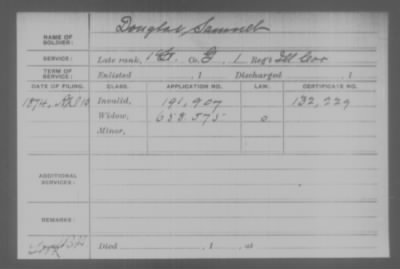 NAME OF SOLDIER: Douglas, Samuel
SERVICE: Late rank, Co. G, 1 Reg't Ill Cav
TERM OF SERVICE: Enlisted , 1 Discharged , 1
DATE OF FILING. CLASS. APPLICATION NO. LAW. CERTIFICATE NO.
1874, Invalid, 191,907 132,229
Widow, 658.575 o
Minor,
ADDITIONAL SERVICES:
REMARKS:
Died , 1 , at